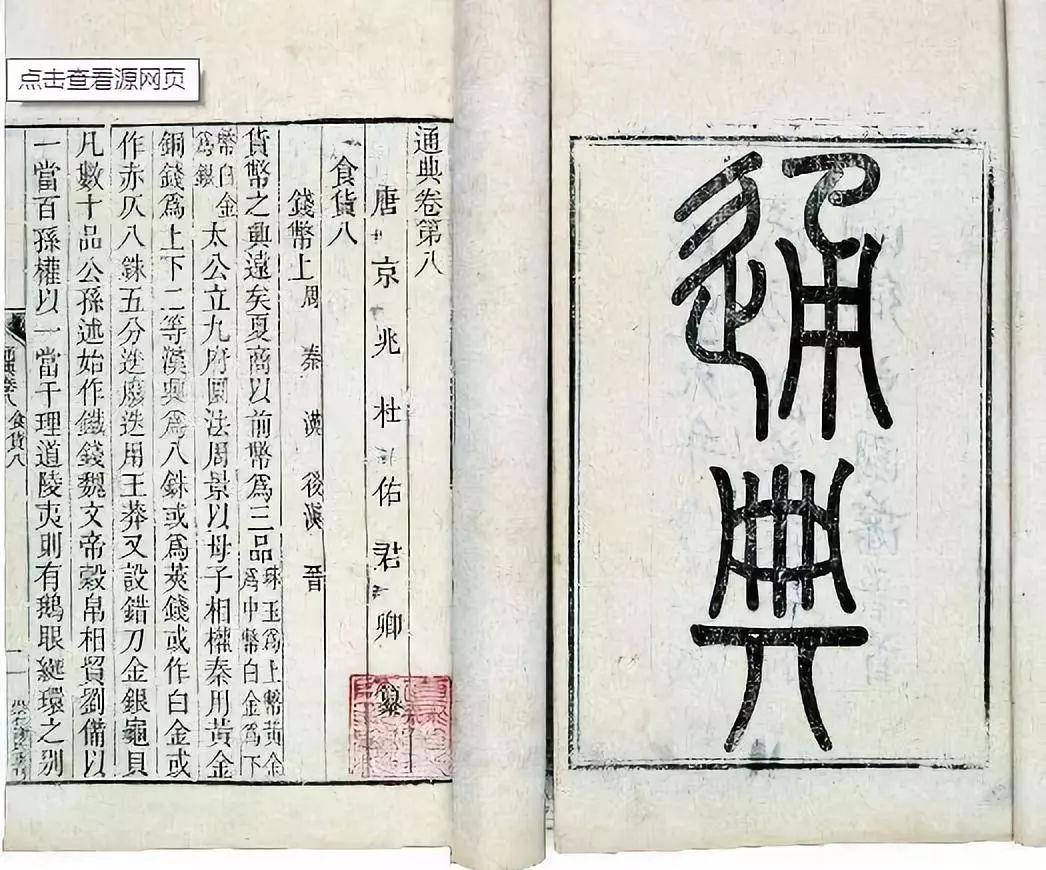 点击查看源网页
通典
通典卷第八
唐京兆杜佑君卿纂
食貨八
錢幣上 周 秦 漢 後漢 晉
貨幣之興遠矣夏商以前幣爲三品珠玉爲上幣黃金爲中幣白金爲下
幣白金爲銀太公立九府圜法周景以母子相權秦用黃金
銅錢爲上下二等漢興爲八銖或爲莢錢或作白金或
作赤仄八銖五分迭廢迭用王莽又設錯刀金銀龜貝
凡數十品公孫述始作鐵錢魏文帝穀帛相貿劉備以
一當百孫權以一當千理道陵夷則有鵝眼綖環之別
通典卷八 食貨八